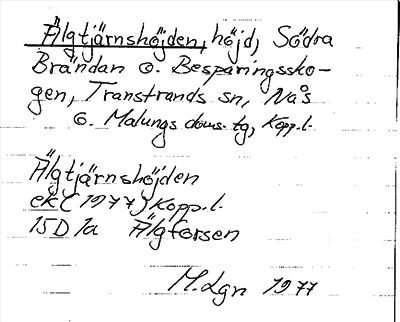 Älgtjärnshöjden, höjd, Södra
Brändan o. Besparingssko-
gen, Transtrands sn, Nås
o. Malungs doms. tg, Kopp.l.
Älgtjärnshöjden
ek (1977) Kopp.l.
15D 1a Älgforsen
M.Lgn 1977